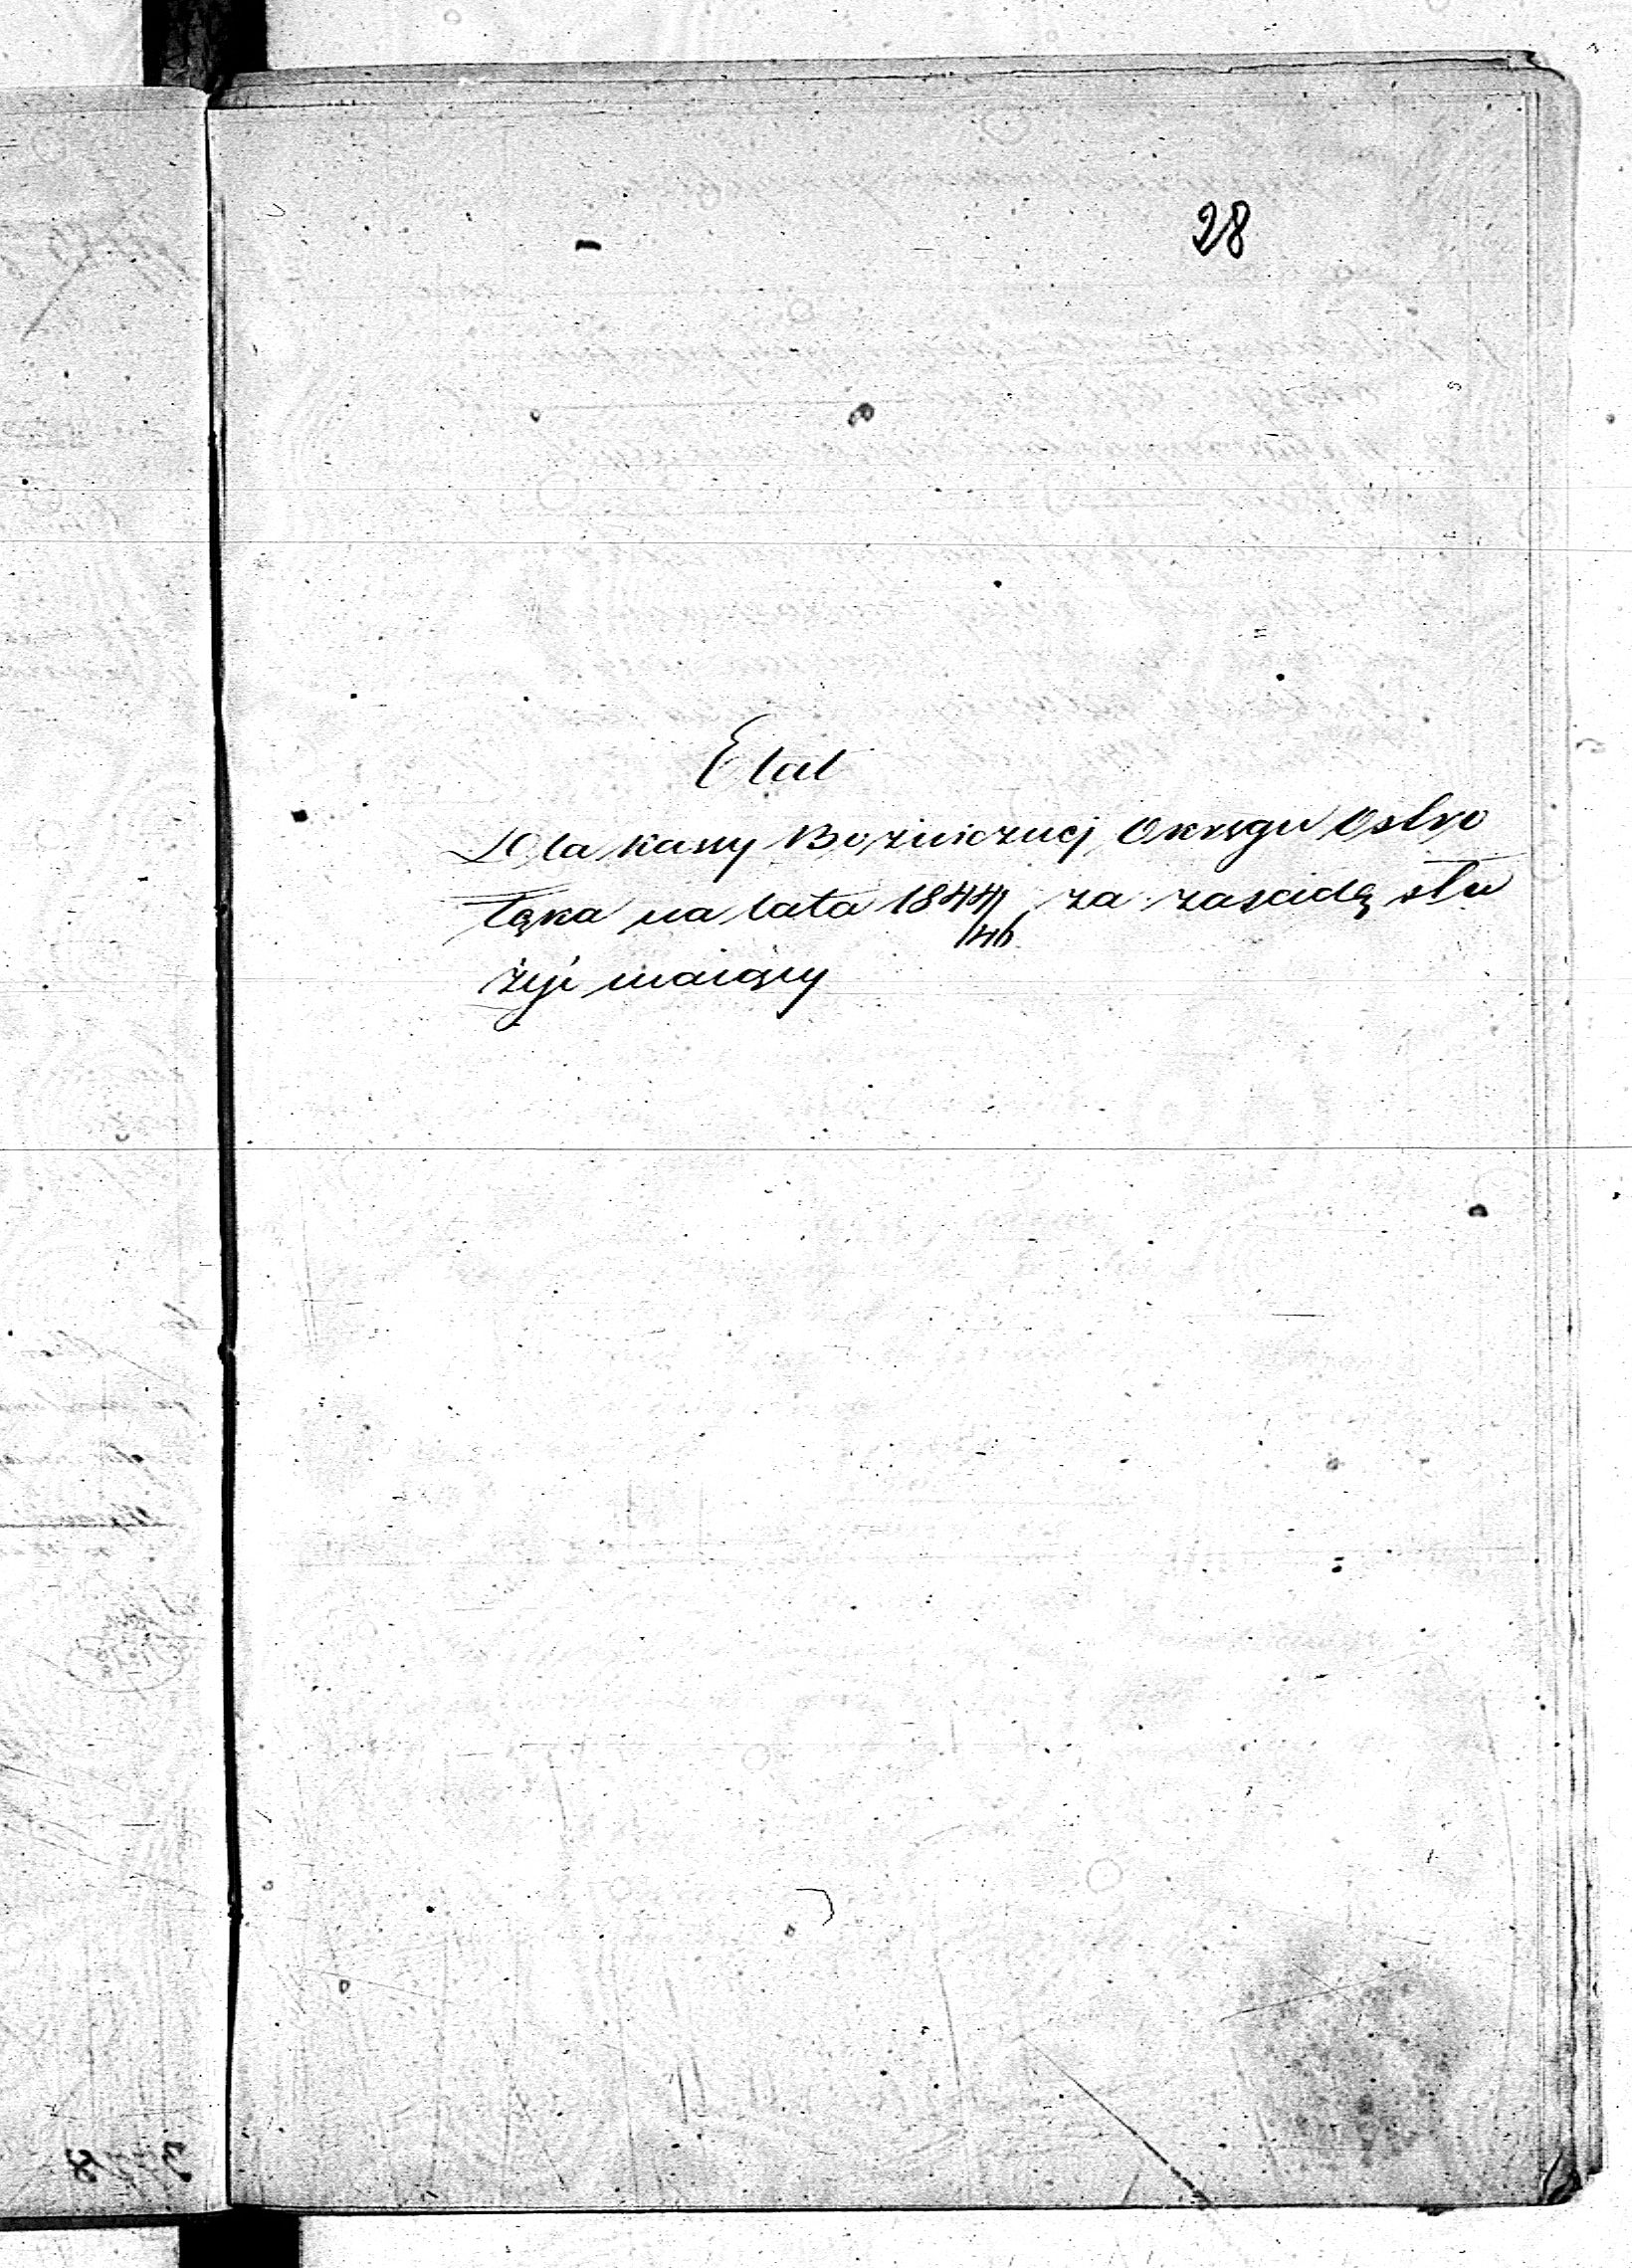 28
Etat
Dla Kassy Bożniczney Okręgu Ostro
łęka na lata 1844/46 za zasadę słu
żyć maiący